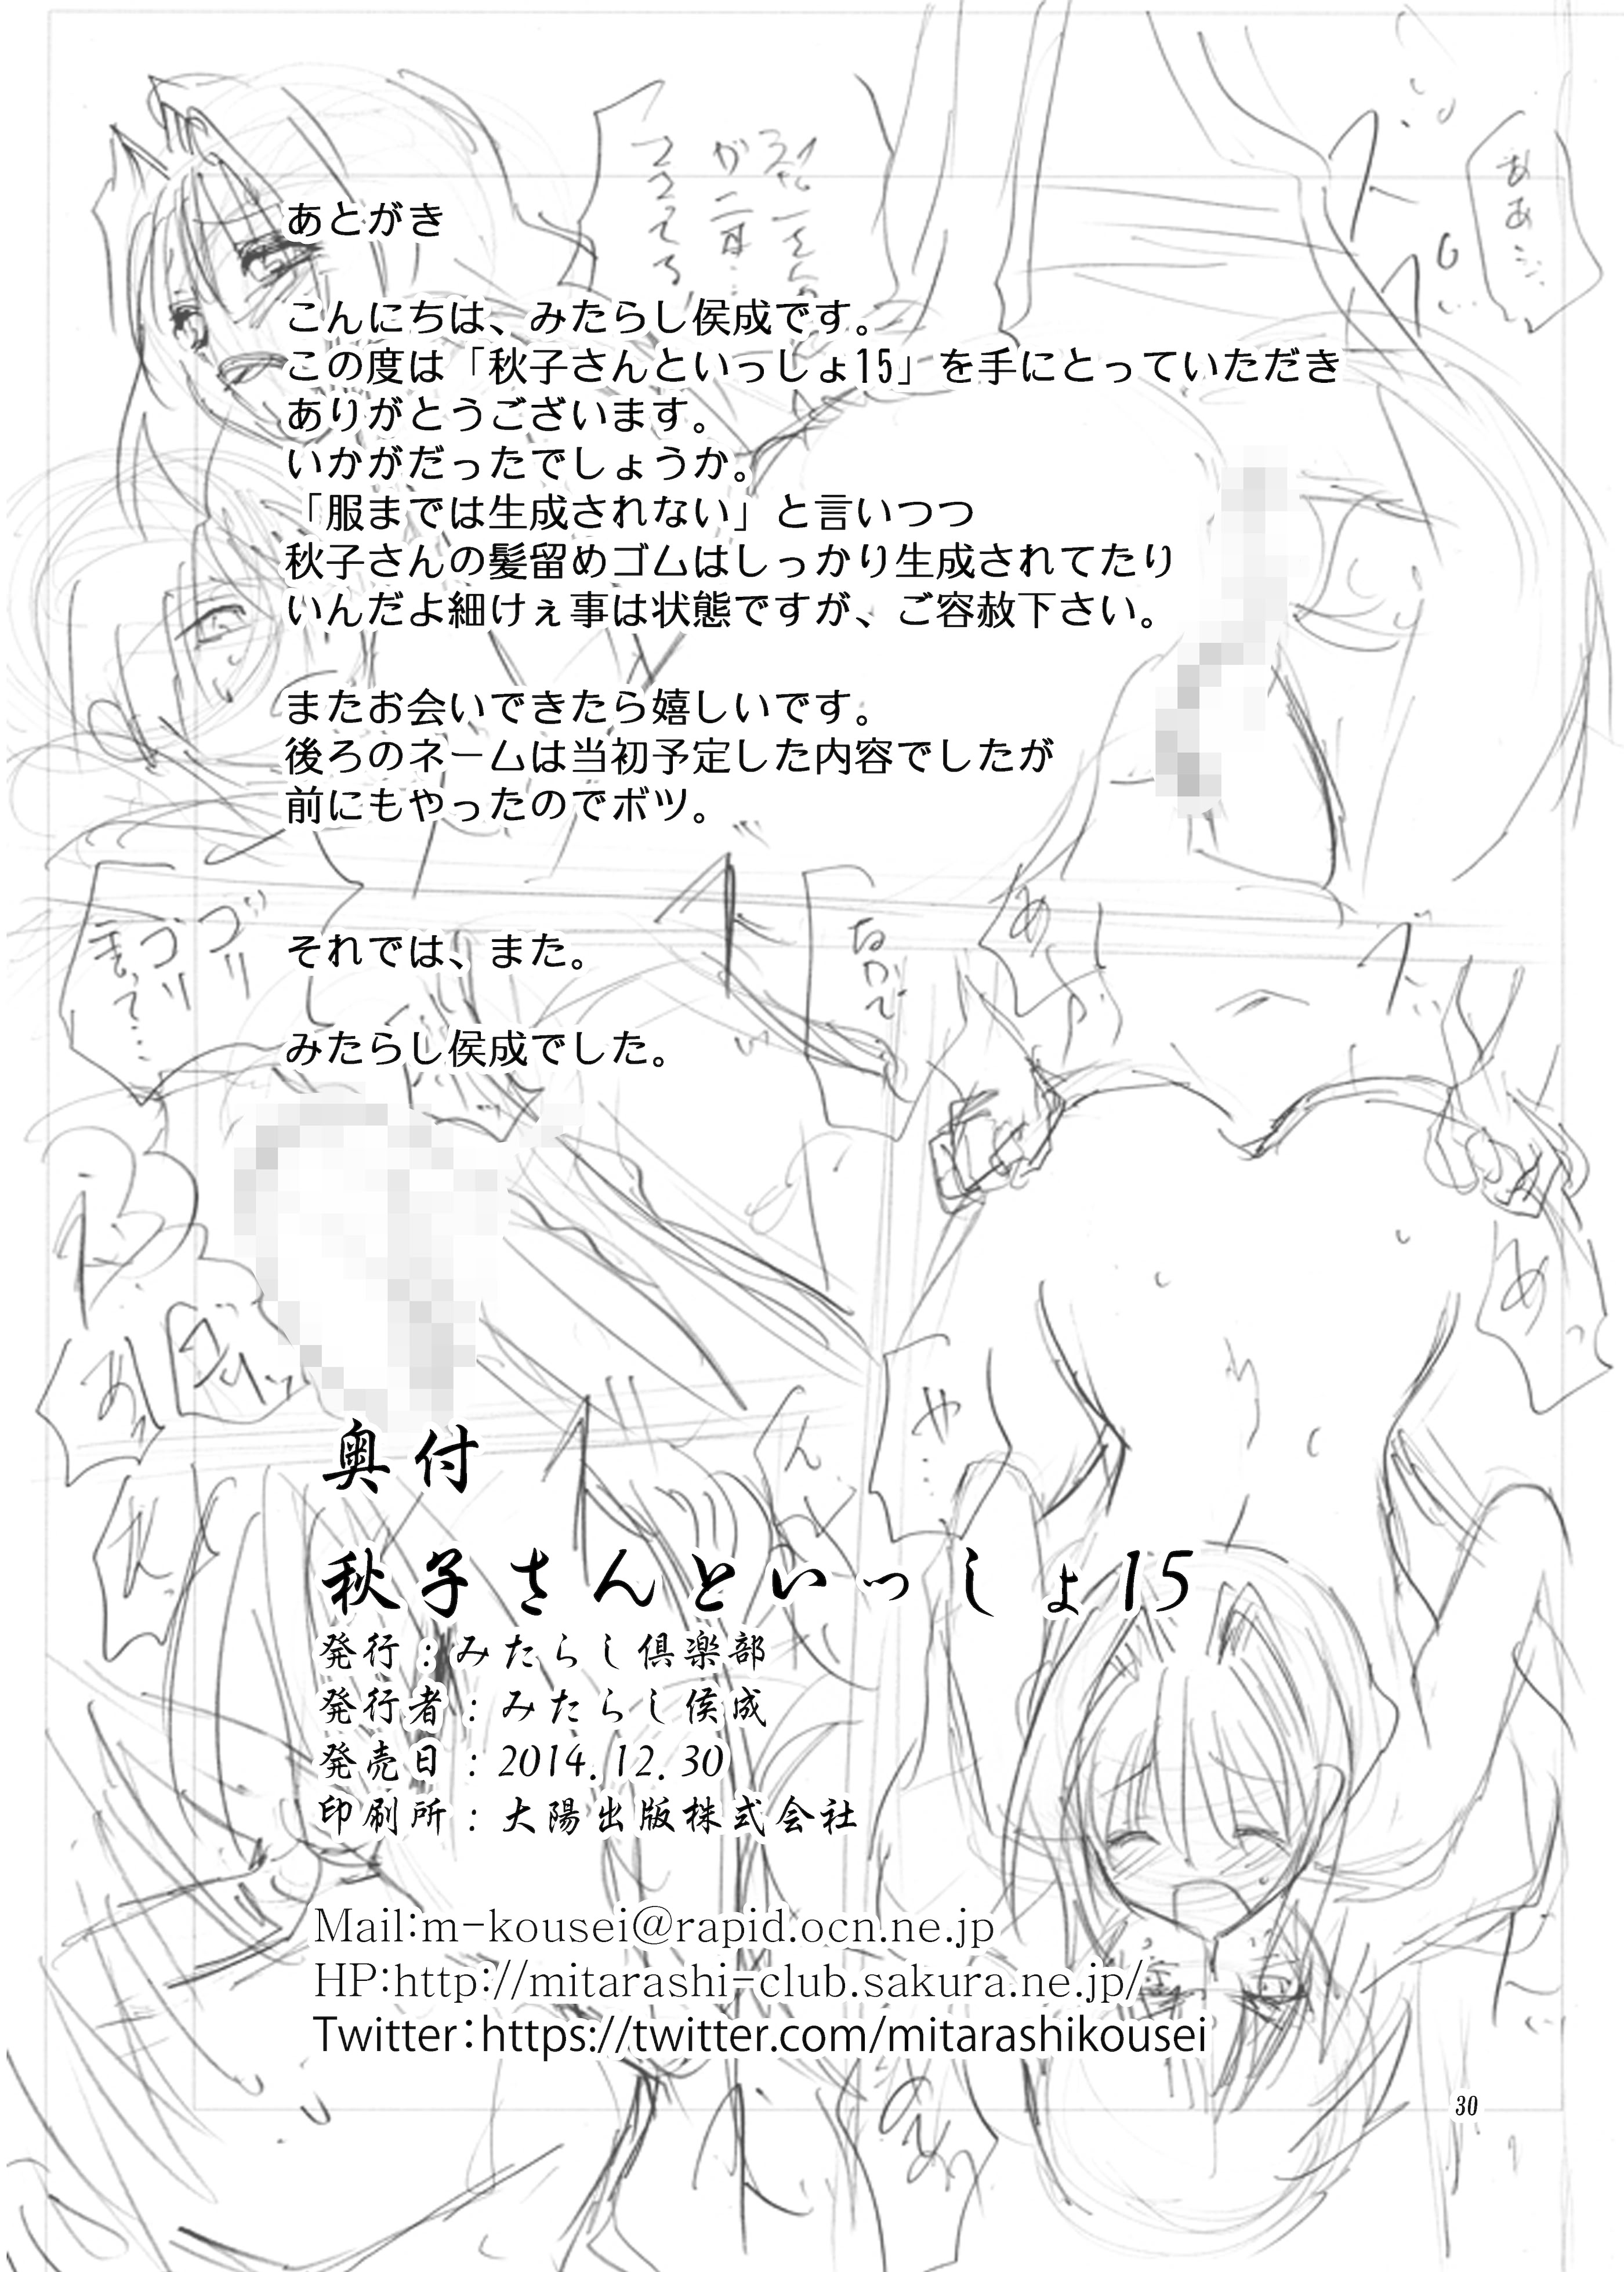 あとがき
こんにちは、みたらし侯成です。
この度は「秋子さんといっしょ15」を手にとっていただき
ありがとうございます。
いかがだったでしょうか。
「服までは生成されない」と言いつつ
秋子さんの髪留めゴムはしっかり生成されてたり
いんだよ細けぇ事は状態ですが、ご容赦下さい。
またお会いできたら嬉しいです。
後ろのネームは当初予定した内容でしたが
前にもやったのでボツ。
それでは、また。
みたらし侯成でした。
奥付
秋子さんといっしょ15
発行:みたらし倶楽部
発行者:みたらし侯成
発売日:2014.12.30
印刷所:大陽出版株式会社
Mail:m-kousei@rapid.ocn.ne.jp
HP:http://mitarashi-club.sakura.ne.jp/
Twitter:https://twitter.com/mitarashikousei
30